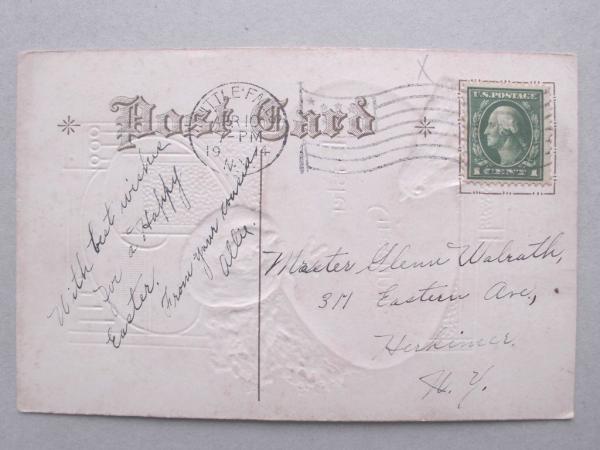 Post Card
LITTLE FALLS
APR 10
PM
19
N.Y.
U.S. POSTAGE
1 CENT 1
With best wishes
for a Happy
Easter.
From your cousin
Allie.
Master Glenn Walrath,
311 Eastern Ave.,
Herkimer
N. Y.